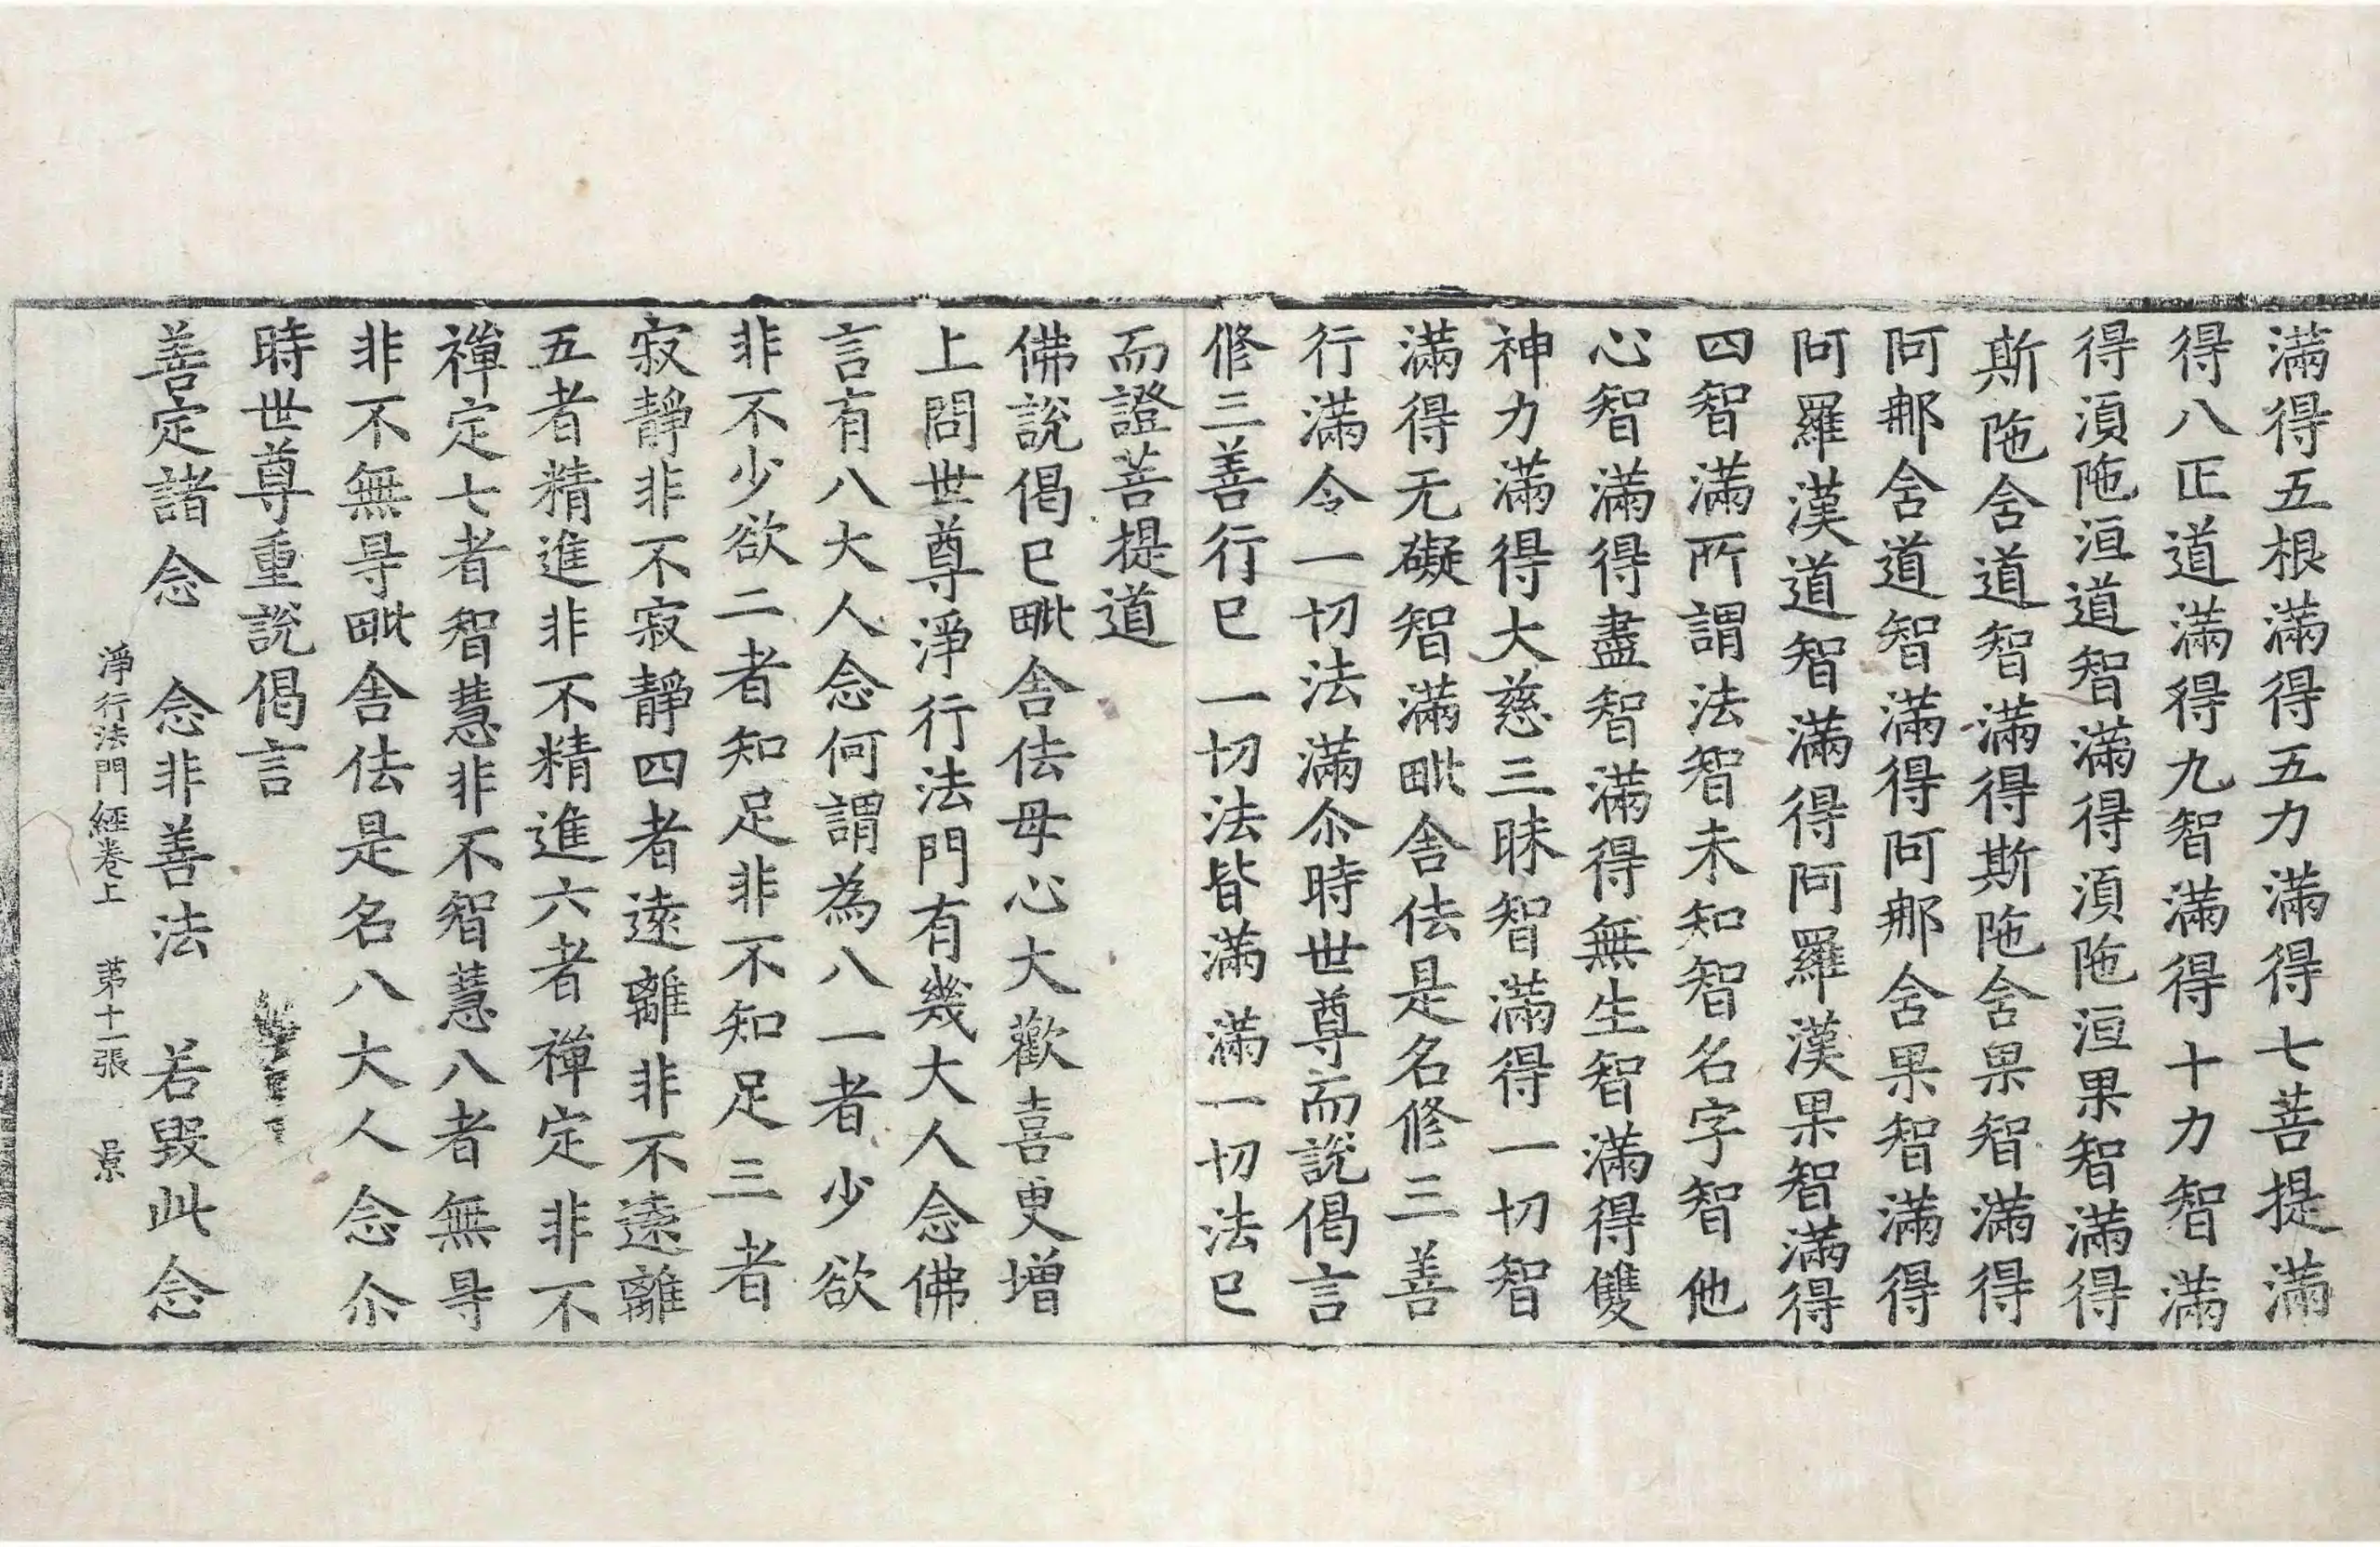 滿得五根滿得五力滿得七菩提滿
得八正道滿得九智滿得十力智滿
得湏陁洹道智滿得湏陁洹果智滿得
斯陁舍道智滿得斯陁舍果智滿得
阿那舍道智滿得阿那舍果智滿得
阿羅漢道智滿得阿羅漢果智滿得
四智滿所謂法智未知智名字智他
心智滿得盡智滿得無生智滿得雙
神力滿得大慈三昧智滿得一切智
滿得无礙智滿毗舍佉是名修三善
行滿令一切法滿尒時世尊而說偈言
修三善行已 一切法皆滿 滿一切法已
而證菩提道
佛說偈已毗舍佉母心大歡喜更增
上問世尊淨行法門有幾大人念佛
言有八大人念何謂為八一者少欲
非不少欲二者知足非不知足三者
寂靜非不寂靜四者遠離非不遠離
五者精進非不精進六者禪定非不
禪定七者智慧非不智慧八者無㝵
非不無㝵毗舍佉是名八大人念尒
時世尊重說偈言
善定諸念 念非善法 若毀此念
淨行法門經卷上 苐十一張 景